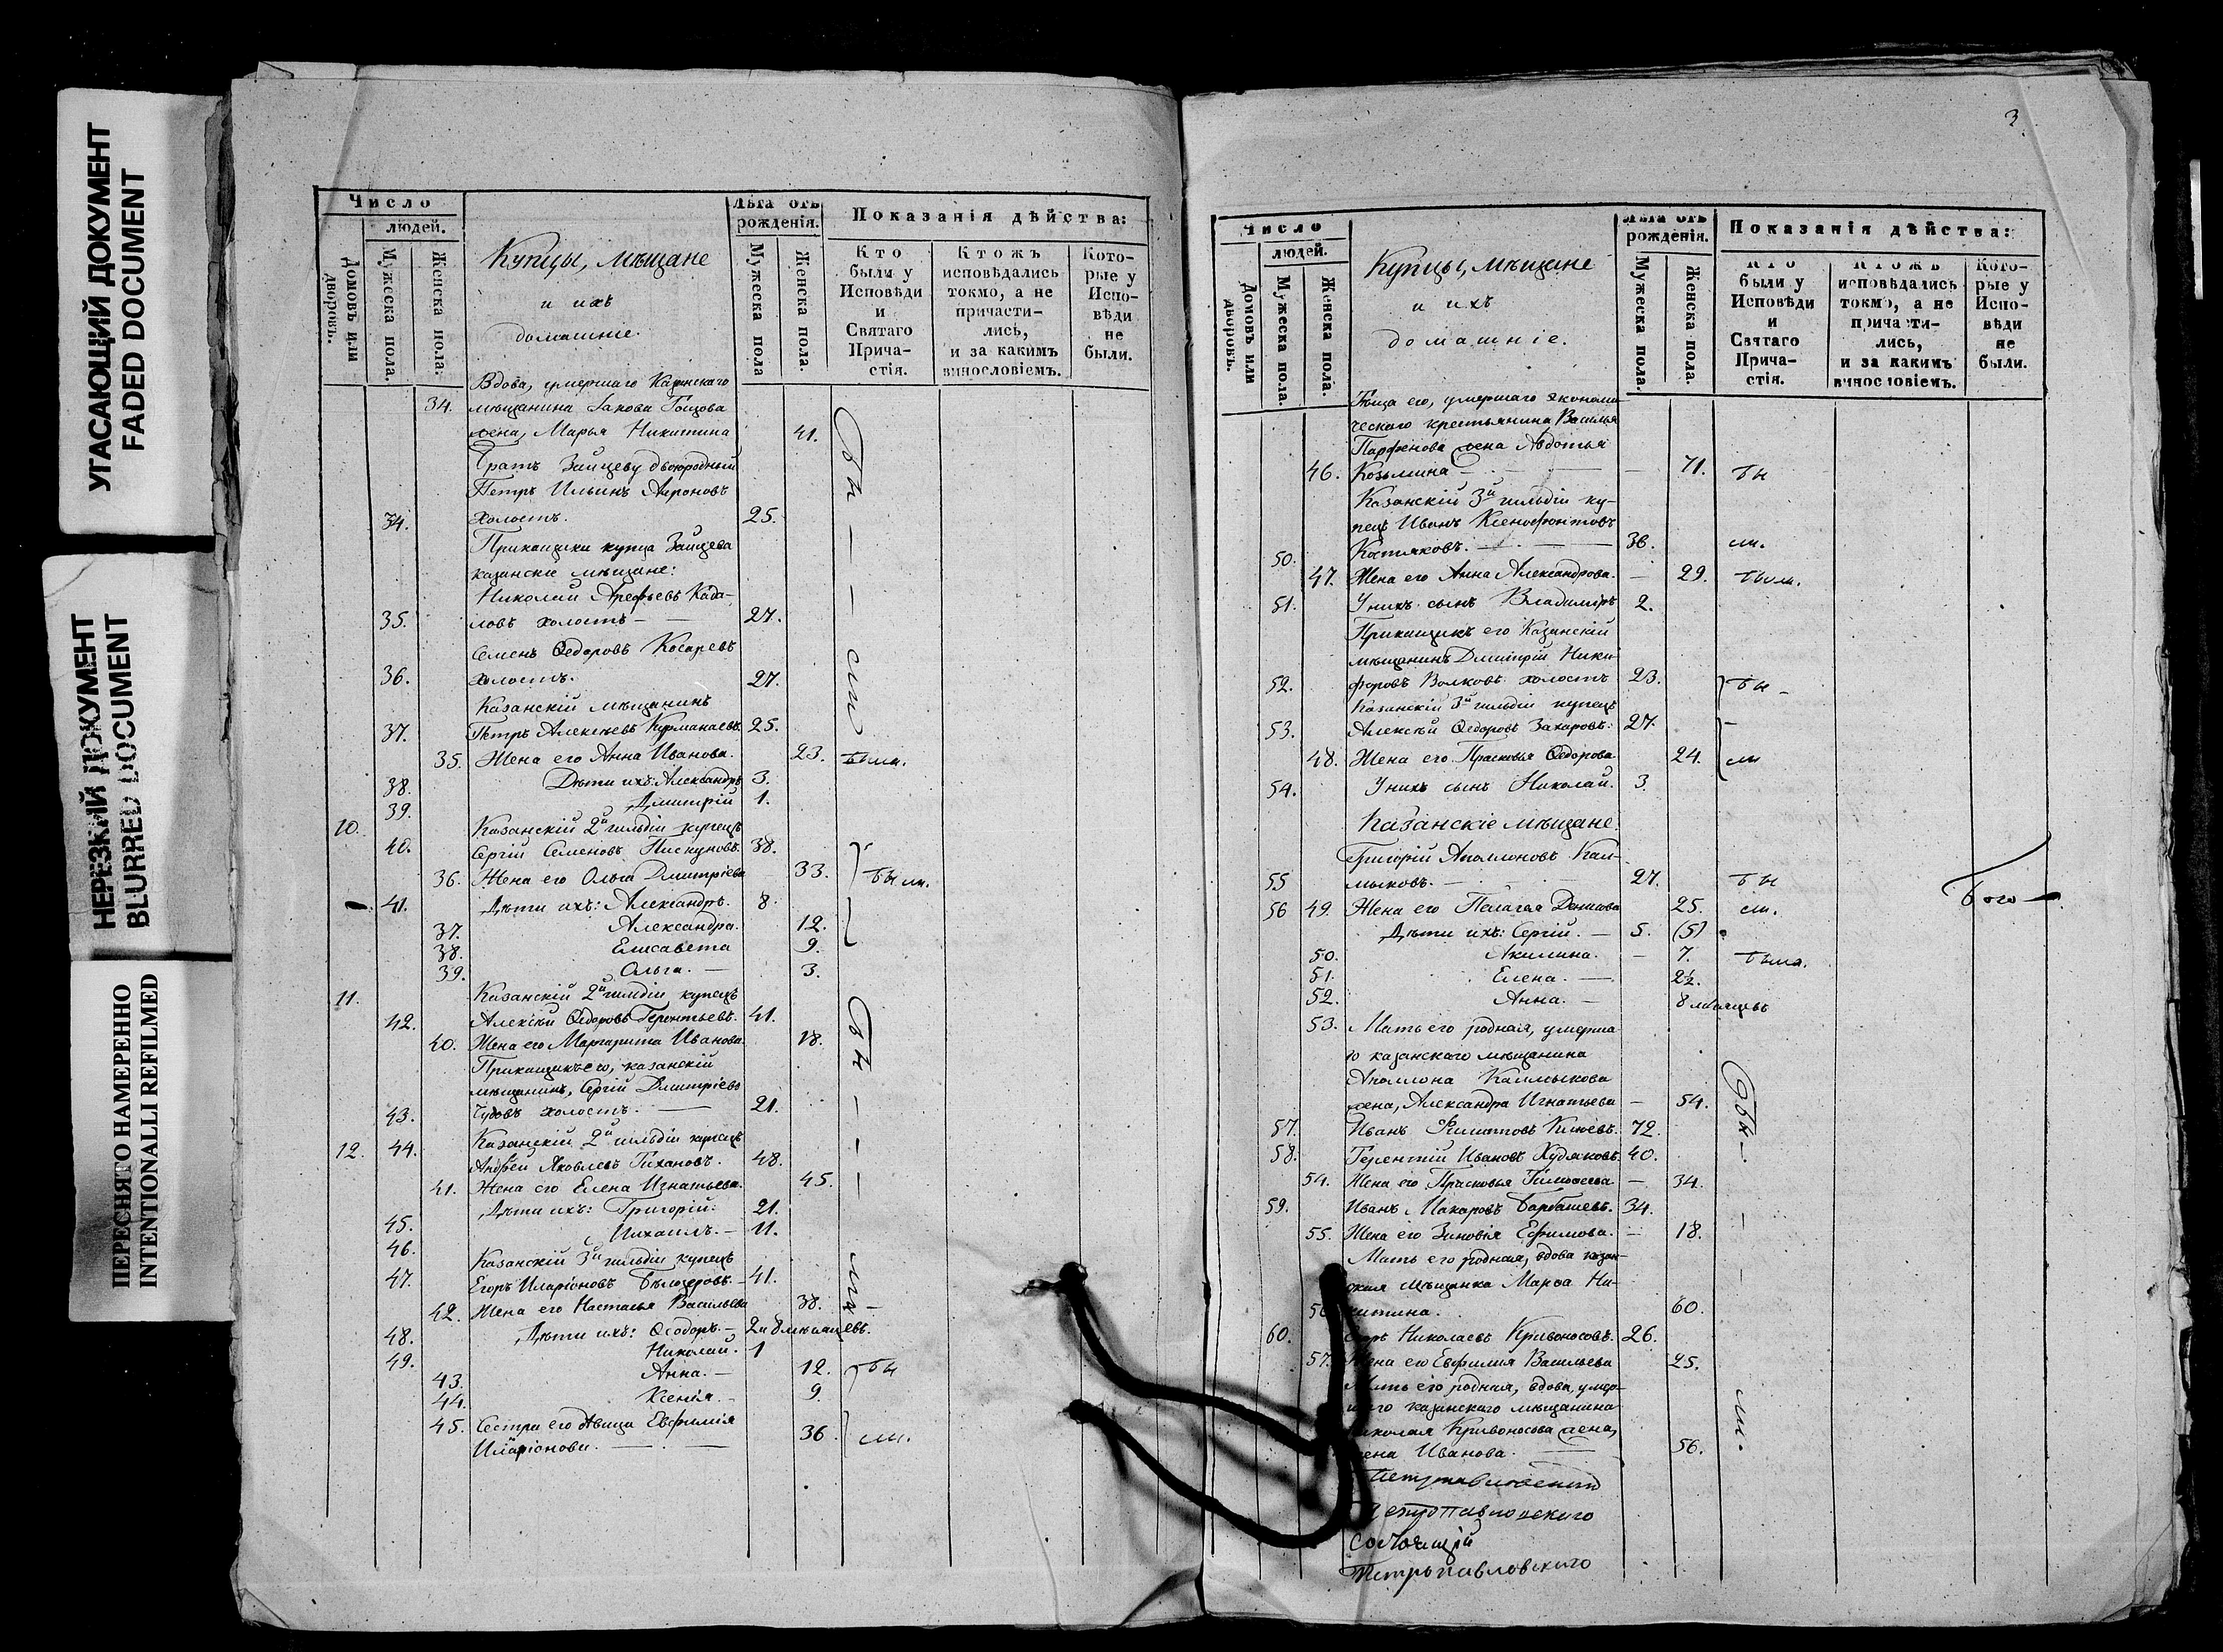 УГАСАЮЩИЙ ДОКУМЕНТ
FADED DOCUMENT
НЕРЕЗКИЙ ДОКУМЕНТ
BLURRED DOCUMENT
ПЕРЕСНЯТО НАМЕРЕННО
INTENTIONALLI REFILMED
Число
людей.
Домовъ или дворовъ.
Мужеска пола.
Женска пола.
Купцы, мѣщане
и ихъ
домашніе.
Лѣта отъ
рожденія.
Мужеска пола
Женска пола.
Показанія дѣйства:
Кто
были у
Исповѣди
и
Святаго
Прича-
стія.
Ктожъ
исповѣдались
токмо, а не
причасти-
лись,
и за какимъ
винословіемъ.
Кото-
рые у
Испо-
вѣди
не
были.
Вдова, умершаго Казанскаго
34. мѣщанина Іакова
жена, Марья Никитина 41.
Братъ Зайцеву двоюродный
Петръ Ильинъ
34. холостъ. 25.
Прикащики купца Зайцева
казанскіе мѣщане:
Николай Арефьевъ Када-
35. ловъ холостъ — 27.
Семенъ Ѳедоровъ Косаревъ
36. холостъ. 27.
Казанскій мѣщанинъ
37. Петръ Алексѣевъ Курманаевъ. 25.
35. Жена его Анна Иванова. 23. были.
38. Дѣти ихъ: Александръ 3.
39. Дмитрій 1.
10. Казанскій 2й гильдіи купецъ
40. Сергій Семеновъ Пискуновъ. 38.
36. Жена его Ольга Дмитріева 33. были.
41. Дѣти ихъ: Александръ. 8.
37. Александра. 12.
38. Елисавета 9.
39. Ольга. — 3.
11. Казанскій 2й гильдіи купецъ
42. Алексѣй Ѳедоровъ Терентьевъ. 41.
40. Жена его Маргарита Иванова. 18.
Прикащикъ его, казанскій
мѣщанинъ, Сергій Дмитріевъ
43. Чудовъ холостъ. — 21.
12. 44. Казанскій 2й гильдіи купецъ
Андрей Яковлевъ Тихановъ. 48.
41. Жена его Елена Игнатьева. 45.
Дѣти ихъ: Григорій: 21.
45. Михаилъ. — 11.
46. Казанскій 3й гильдіи купецъ
47. Егоръ Иларіоновъ Бѣлозеровъ. — 41.
42. Жена его Настасья Васильева 38.
48. Дѣти ихъ: Ѳеодоръ. — 2 и 8 мѣсяцевъ.
49. Николай. 1
43. Анна. — 12. бы
44. Ксенія. — 9.
45. Сестра его дѣвица Евфимія 36. ли.
Иларіонова. — —
3
Число
людей.
Домовъ или дворовъ.
Мужеска пола.
Женска пола.
Купцы, мѣщане
и ихъ
домашніе.
Лѣта отъ
рожденія.
Мужеска пола.
Женска пола.
Показанія дѣйства:
Кто
были у
Исповѣди
и
Святаго
Прича-
стія.
Ктожъ
исповѣдались
токмо, а не
причасти-
лись,
и за какимъ
винословіемъ.
Кото-
рые у
Испо-
вѣди
не
были.
Теща его, умершаго экономи-
ческаго крестьянина Василья
Парфенова жена Авдотья
46. Козьмина — 71. бы
Казанскій 3й гильдіи ку-
пецъ Иванъ Ксенофонтовъ
50. 36. ли.
47. Жена его Анна Александрова. — 29. были.
51. У нихъ сынъ Владиміръ 2.
Прикащикъ его Казанскій
мѣщанинъ Дмитрій Ники-
52. форовъ Волковъ холостъ 23. бы —
Казанскій 3й гильдіи купецъ
53. Алексѣй Ѳедоровъ Захаровъ: 27.
48. Жена его Прасковья Ѳедорова 24. ли
54. У нихъ сынъ Николай. 3.
Казанскіе мѣщане.
Григорій Аполлоновъ Кал-
55 мыковъ. — 27. бы
56 49. Жена его Пелагея 25. ли.
Дѣти ихъ: Сергій. — 5. (5)
50. Акилина. — 7. были.
51. Елена. — 2½.
52. Анна. — 8 мѣсяцевъ
53. Мать его родная, умерша-
го казанскаго мѣщанина
Аполлона Калмыкова
жена, Александра Игнатьева — 54.
57. Иванъ Филиповъ Килеевъ. 72.
58. Терентій Ивановъ Худяковъ. 40.
54. Жена его Прасковья Тимоѳеева — 34.
59. Иванъ Макаровъ Барбашевъ. 34.
55. Жена его Зиновія Ефимова. — 18.
Мать его родная, вдова казан-
ская мѣщанка Марѳа Ни-
56 китина. 60.
60. Егоръ Николаевъ Кривоносовъ. 26.
57. Жена его Евфимія Васильева 25.
Мать его родная, вдова, умер-
шаго казанскаго мѣщанина
Николая Кривоносова жена,
Иванова. — 56.
ли.
Петропавловскаго
состоящій
Петропавловскаго